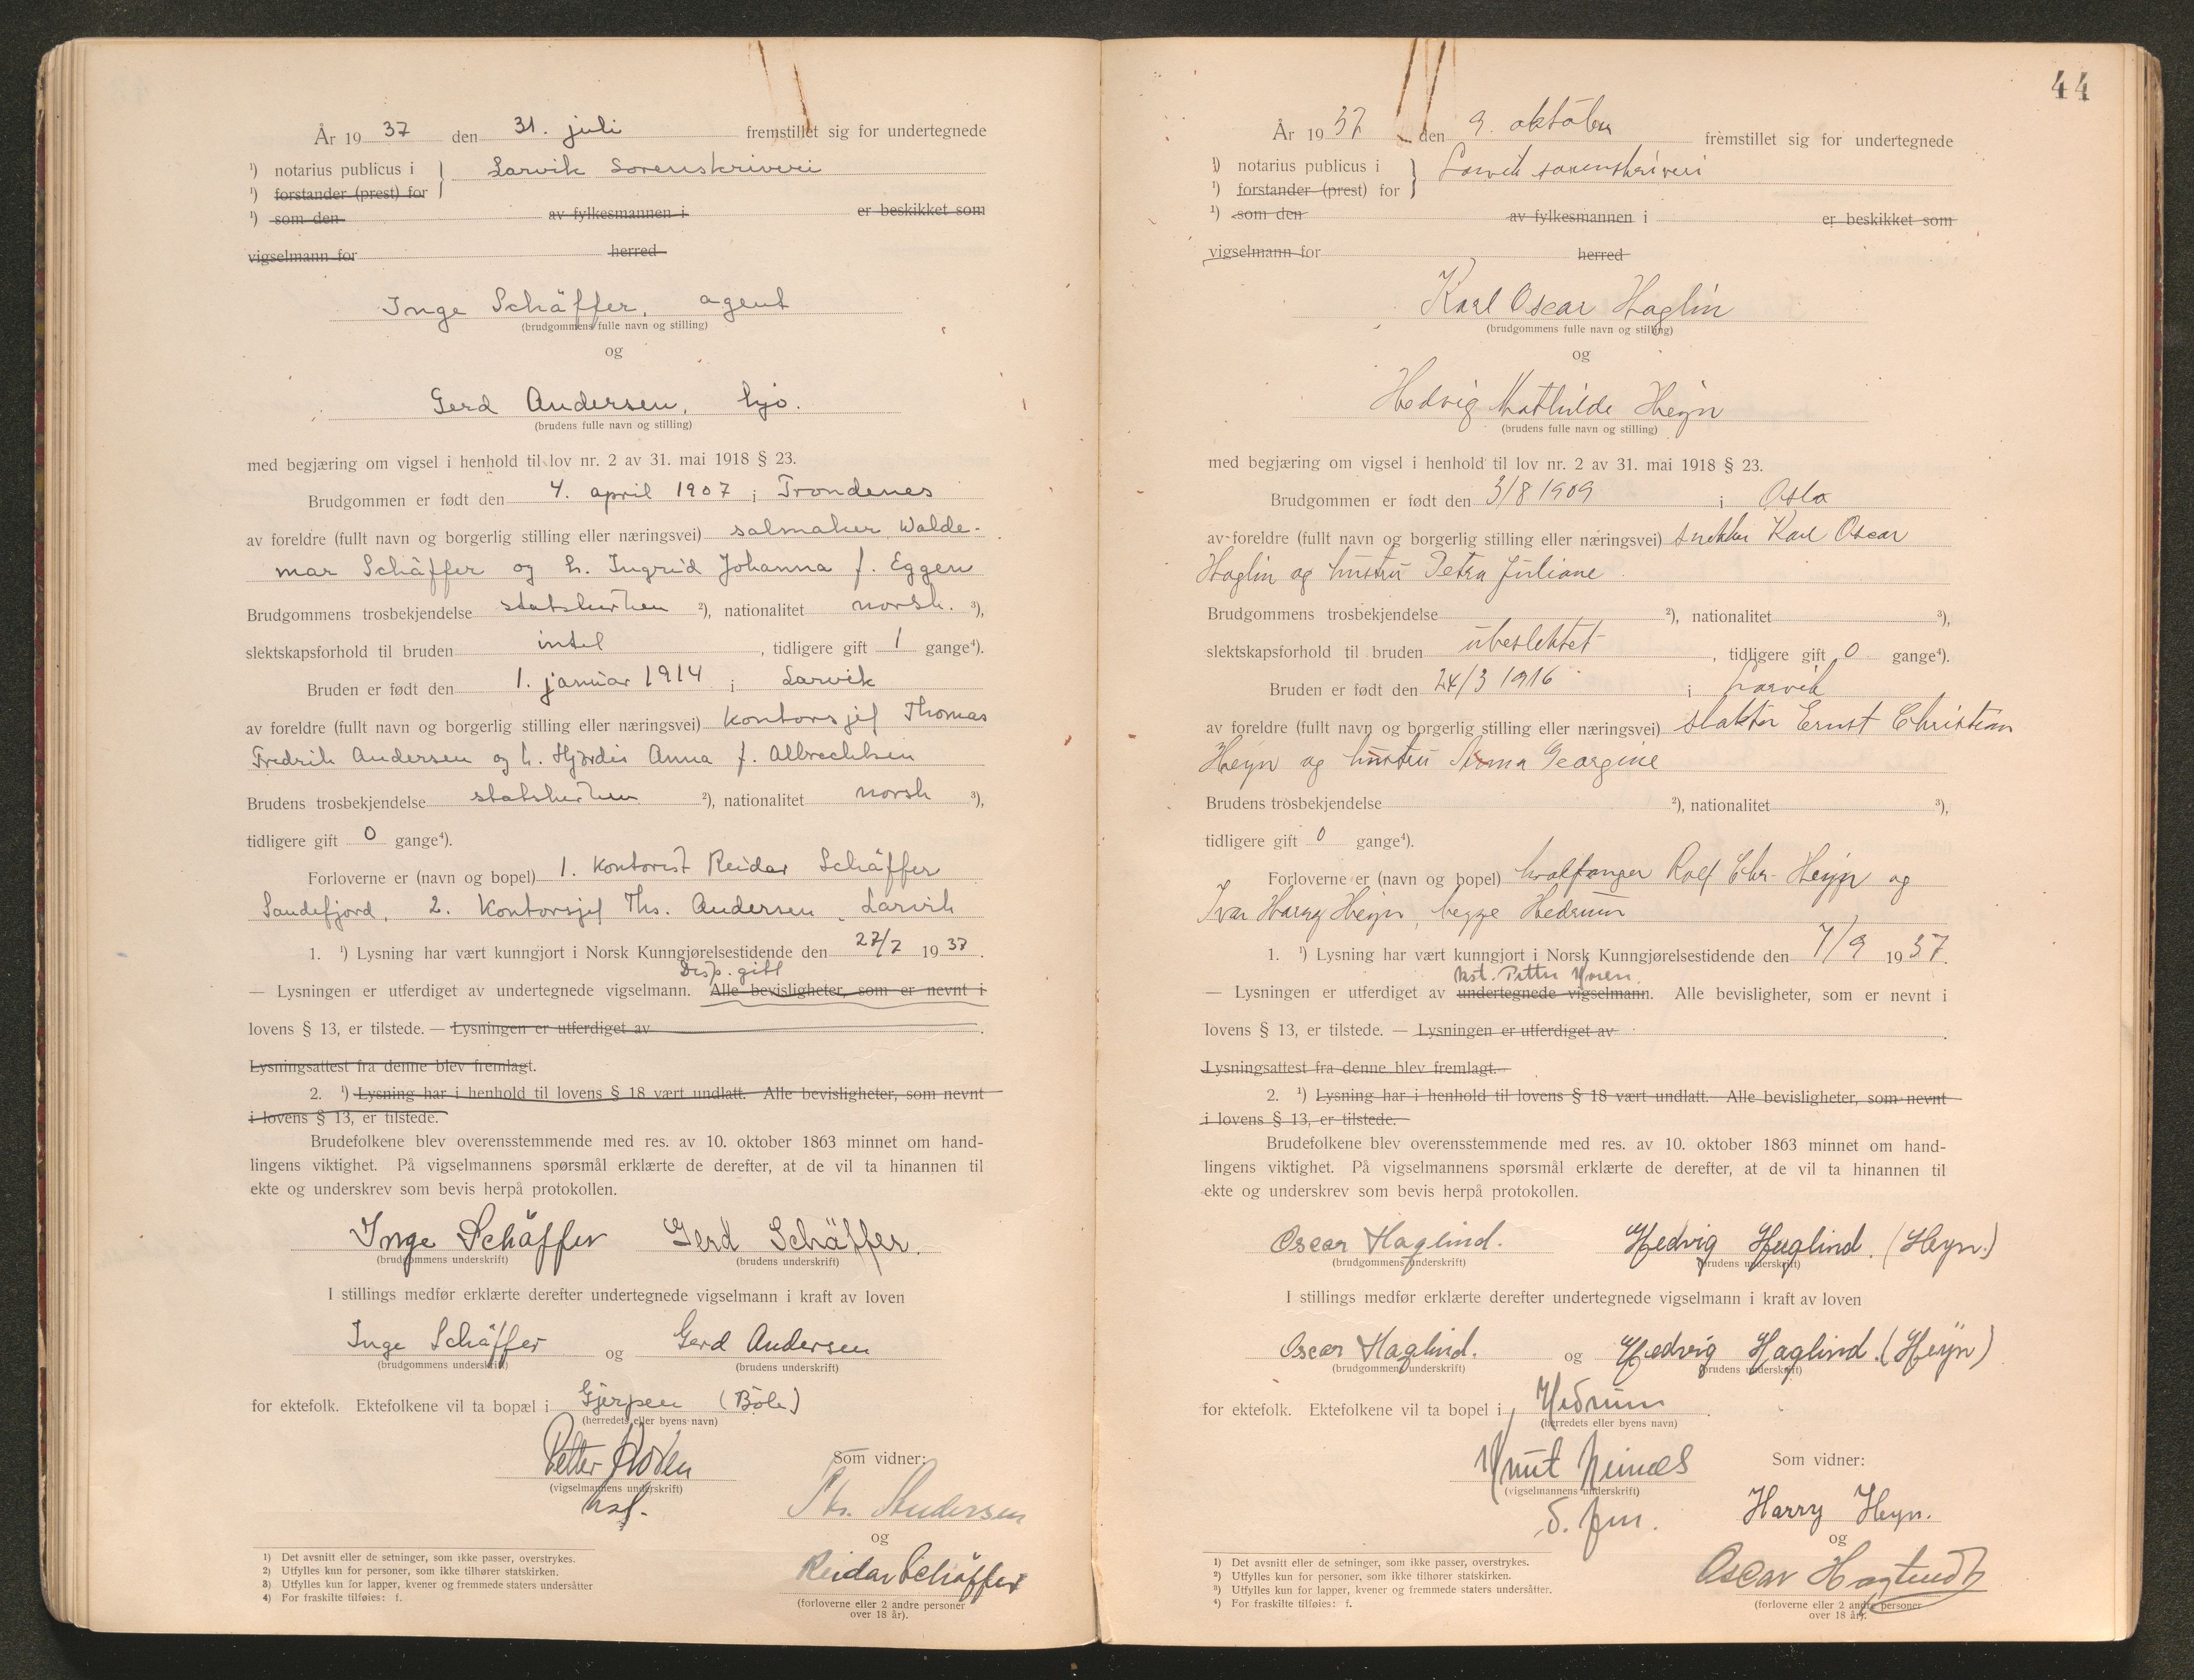 År 19 37 den 31. juli fremstillet sig for undertegnede
¹) notarius publicus i } Larvik sorenskriveri
¹) forstander (prest) for
¹) som den av fylkesmannen i er beskikket som
vigselmann for herred
Inge Schäffer, agent
(brudgommens fulle navn og stilling)
og
Gerd Andersen, hjv.
(brudens fulle navn og stilling)
med begjæring om vigsel i henhold til lov nr. 2 av 31. mai 1918 § 23.
Brudgommen er født den 4. april 1907 i Trondenes
av foreldre (fullt navn og borgerlig stilling eller næringsvei) salmaker Walde-
mar Schäffer og h. Ingrid Johanna f. Eggen
Brudgommens trosbekjendelse statskirken ²), nationalitet norsk. ³),
slektskapsforhold til bruden intet, tidligere gift 1 gange⁴).
Bruden er født den 1. januar 1914 i Larvik
av foreldre (fullt navn og borgerlig stilling eller næringsvei) kontorsjef Thomas
Fredrik Andersen og h. Hjørdis Anna f. Albrechtsen
Brudens trosbekjendelse statskirken ²), nationalitet norsk ³),
tidligere gift 0 gange⁴).
Forloverne er (navn og bopel) 1. kontorist Reidar Schäffer
Sandefjord, 2. Kontorsjef Ths. Andersen, Larvik
1. ¹) Lysning har vært kunngjort i Norsk Kunngjørelsestidende den 27/7 19 37.
Disp. gitt
— Lysningen er utferdiget av undertegnede vigselmann. Alle bevisligheter, som er nevnt i
lovens § 13, er tilstede. — Lysningen er utferdiget av .
Lysningsattest fra denne blev fremlagt.
2. ¹) Lysning har i henhold til lovens § 18 vært undlatt. Alle bevisligheter, som nevnt
i lovens § 13, er tilstede.
Brudefolkene blev overensstemmende med res. av 10. oktober 1863 minnet om hand-
lingens viktighet. På vigselmannens spørsmål erklærte de derefter, at de vil ta hinannen til
ekte og underskrev som bevis herpå protokollen.
Inge Schäffer Gerd Schäffer.
(brudgommens underskrift) (brudens underskrift)
I stillings medfør erklærte derefter undertegnede vigselmann i kraft av loven
Inge Schäffer og Gerd Andersen
(brudgommens underskrift) (brudens underskrift)
for ektefolk. Ektefolkene vil ta bopæl i Gjerpen (Böle)
(herredets eller byens navn)
Petter
(vigselmannens underskrift)
kst.
Som vidner:
Ths. Andersen
og
Reidar Schäffer
(forloverne eller 2 andre personer
over 18 år).
1) Det avsnitt eller de setninger, som ikke passer, overstrykes.
2) Utfylles kun for personer, som ikke tilhører statskirken.
3) Utfylles kun for lapper, kvener og fremmede staters undersåtter
4) For fraskilte tilføies: f.
44
År 19 37 den 9. oktober fremstillet sig for undertegnede
¹) notarius publicus i } Larvik sorenskriveri
¹) forstander (prest) for
¹) som den av fylkesmannen i er beskikket som
vigselmann for herred
Karl Oscar Haglin
(brudgommens fulle navn og stilling)
og
Hedvig Mathilde Heyn
(brudens fulle navn og stilling)
med begjæring om vigsel i henhold til lov nr. 2 av 31. mai 1918 § 23.
Brudgommen er født den 3/8 1909 i Oslo
av foreldre (fullt navn og borgerlig stilling eller næringsvei) snekker Karl Oscar
Haglin og hustru Petra Juliane
Brudgommens trosbekjendelse ²), nationalitet ³),
slektskapsforhold til bruden ubeslektet, tidligere gift 0 gange⁴).
Bruden er født den 24/3 1916 i Larvik
av foreldre (fullt navn og borgerlig stilling eller næringsvei) slakter Ernst Christian
Heyn og hustru Anna Georgine
Brudens trosbekjendelse ²), nationalitet ³),
tidligere gift 0 gange⁴).
Forloverne er (navn og bopel) hvalfanger Rolf Chr. Heyn og
Ivar Harry Heyn, begge Hedrum
1. ¹) Lysning har vært kunngjort i Norsk Kunngjørelsestidende den 7/9 19 37.
kst. Petter
— Lysningen er utferdiget av undertegnede vigselmann. Alle bevisligheter, som er nevnt i
lovens § 13, er tilstede. — Lysningen er utferdiget av .
Lysningsattest fra denne blev fremlagt.
2. ¹) Lysning har i henhold til lovens § 18 vært undlatt. Alle bevisligheter, som nevnt
i lovens § 13, er tilstede.
Brudefolkene blev overensstemmende med res. av 10. oktober 1863 minnet om hand-
lingens viktighet. På vigselmannens spørsmål erklærte de derefter, at de vil ta hinannen til
ekte og underskrev som bevis herpå protokollen.
Oscar Haglind. Hedvig Haglind. (Heyn.)
(brudgommens underskrift) (brudens underskrift)
I stillings medfør erklærte derefter undertegnede vigselmann i kraft av loven
Oscar Haglind. og Hedvig Haglind. (Heyn)
(brudgommens underskrift) (brudens underskrift)
for ektefolk. Ektefolkene vil ta bopel i Hedrum.
(herredets eller byens navn)
Knut
(vigselmannens underskrift)
Som vidner:
Harry Heyn.
og
Oscar
(forloverne eller 2 andre personer
over 18 år).
¹) Det avsnitt eller de setninger, som ikke passer, overstrykes.
²) Utfylles kun for personer, som ikke tilhører statskirken.
³) Utfylles kun for lapper, kvener og fremmede staters undersåtter.
⁴) For fraskilte tilføies: f.